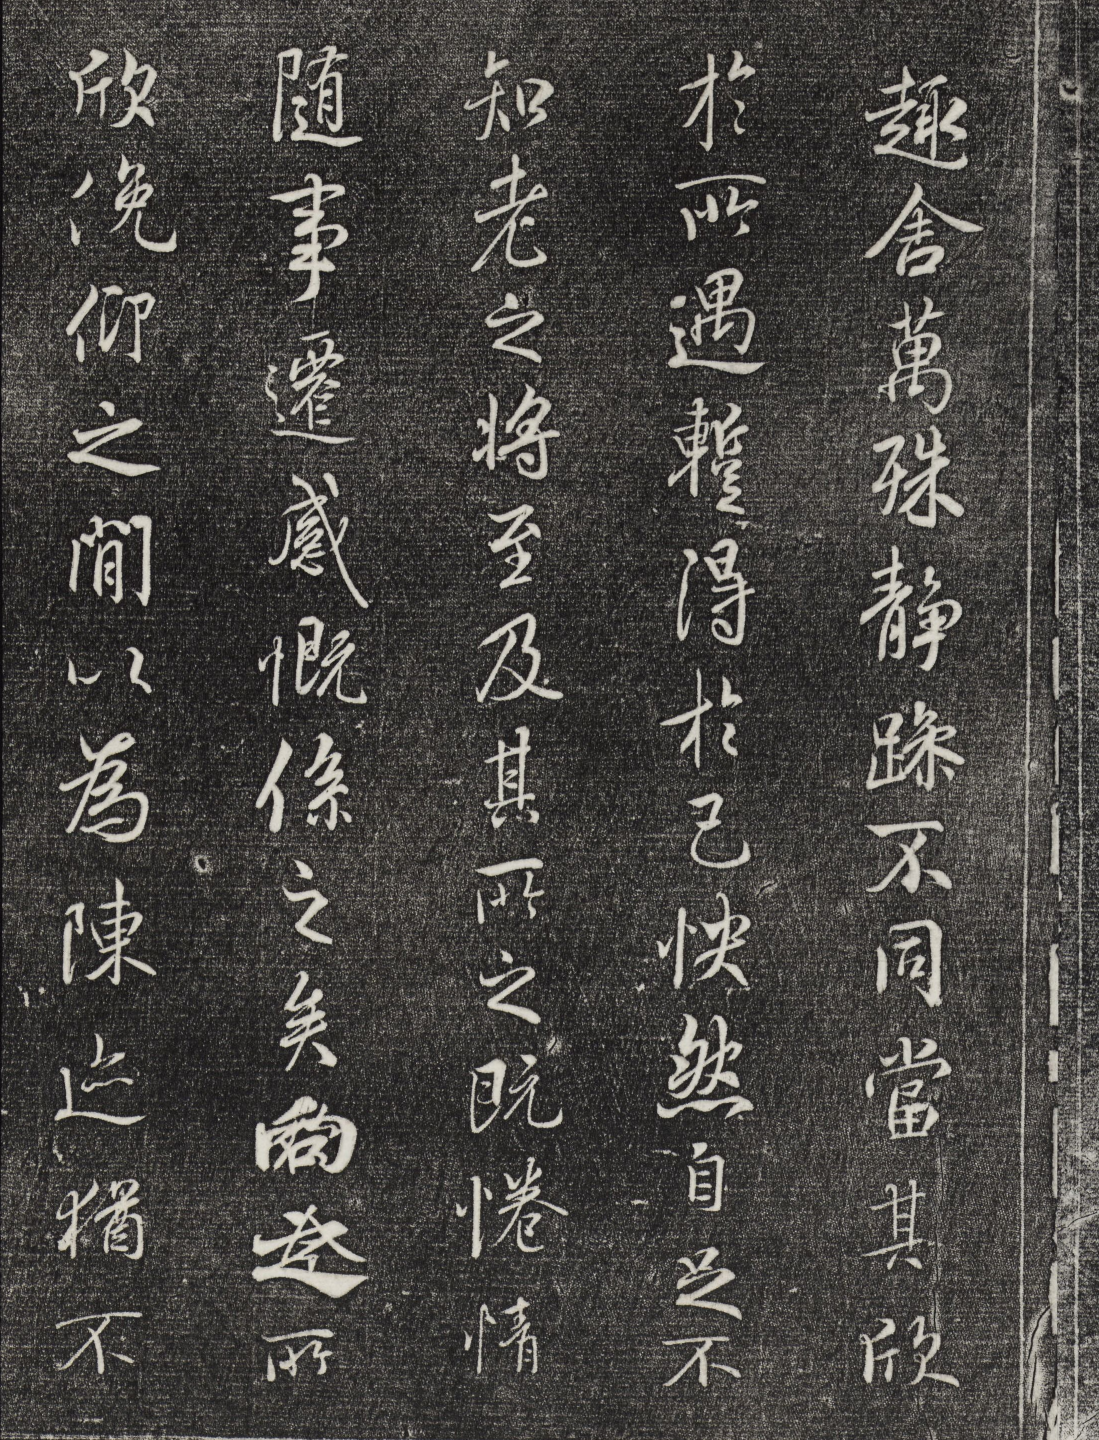 趣舍萬殊静躁不同當其欣
於所遇暫得於己怏然自足不
知老之將至及其所之既惓情
隨事遷感慨係之矣向之所
欣俛仰之間以為陳迹猶不